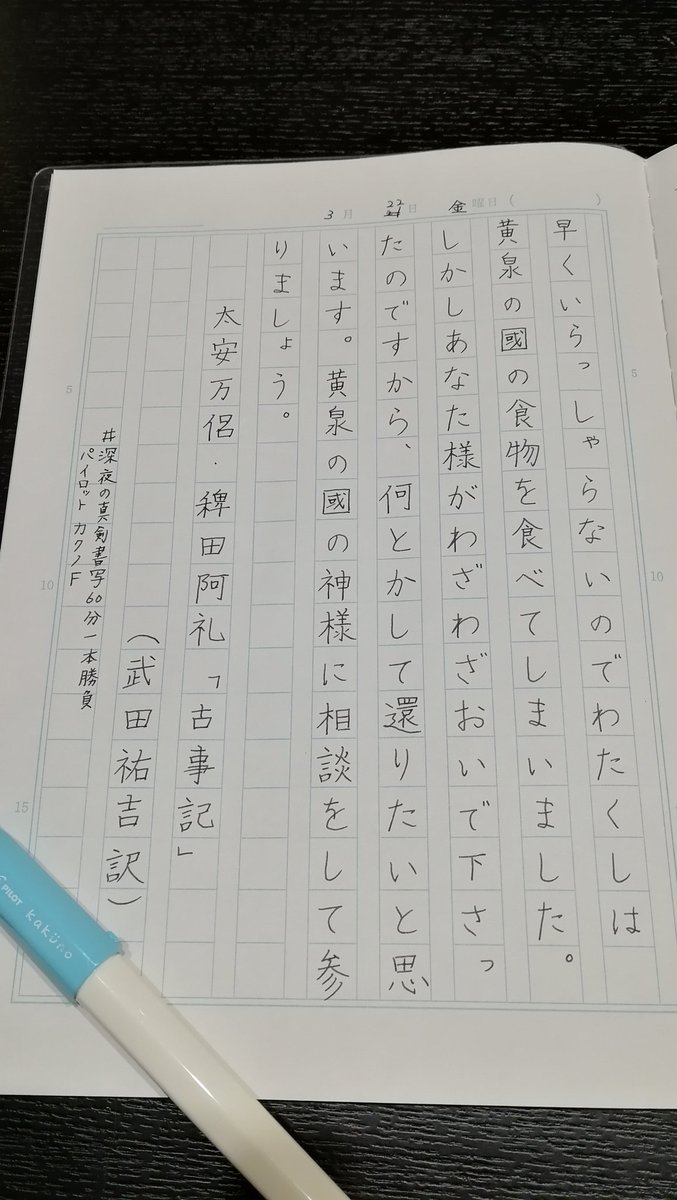 3月 22日 金曜日（　　）
早くいらっしゃらないのでわたくしは
黄泉の國の食物を食べてしまいました。
しかしあなた様がわざわざおいで下さっ
たのですから、何とかして還りたいと思
います。黄泉の國の神様に相談をして参
りましょう。
太安万侶・稗田阿礼「古事記」
（武田祐吉訳）
#深夜の真剣書写60分一本勝負
パイロット カクノ F
5
10
15
5
10
PILOT kaküno